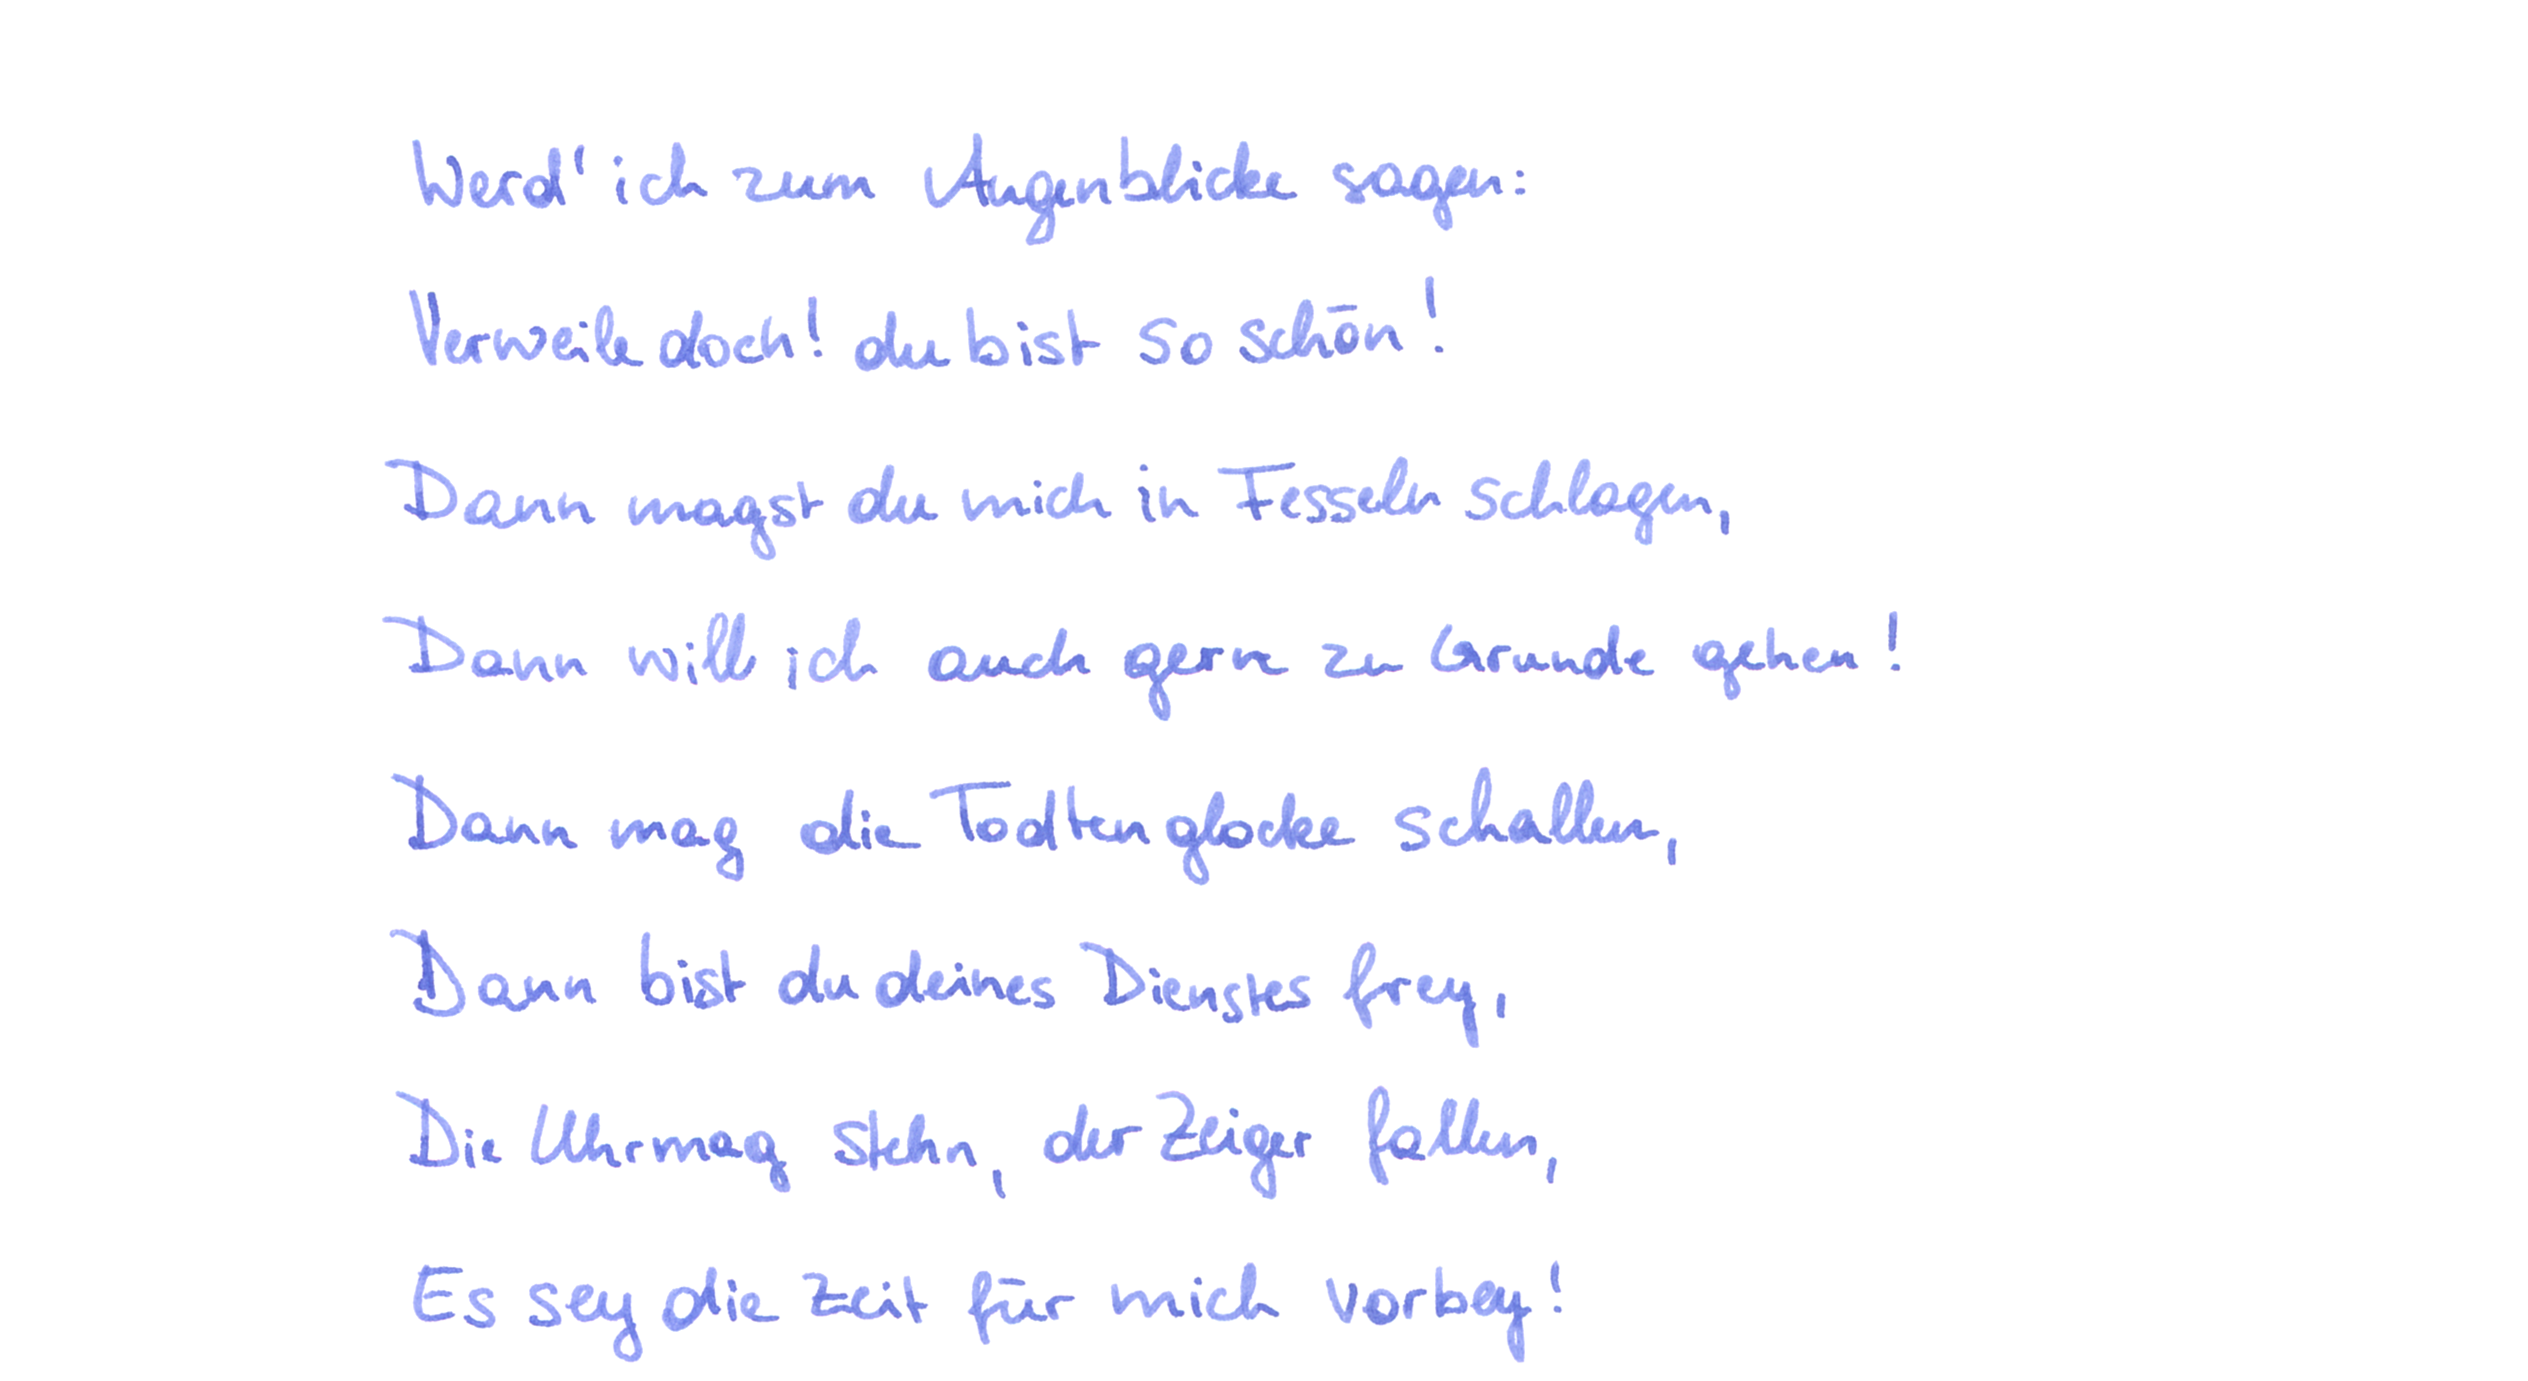 Werd' ich zum Augenblicke sagen:
Verweile doch! du bist so schön!
Dann magst du mich in Fesseln schlagen,
Dann will ich auch gern zu Grunde gehen!
Dann mag die Todtenglocke schallen,
Dann bist du deines Dienstes frey,
Die Uhr mag stehn, der Zeiger fallen,
Es sey die Zeit für mich vorbey!